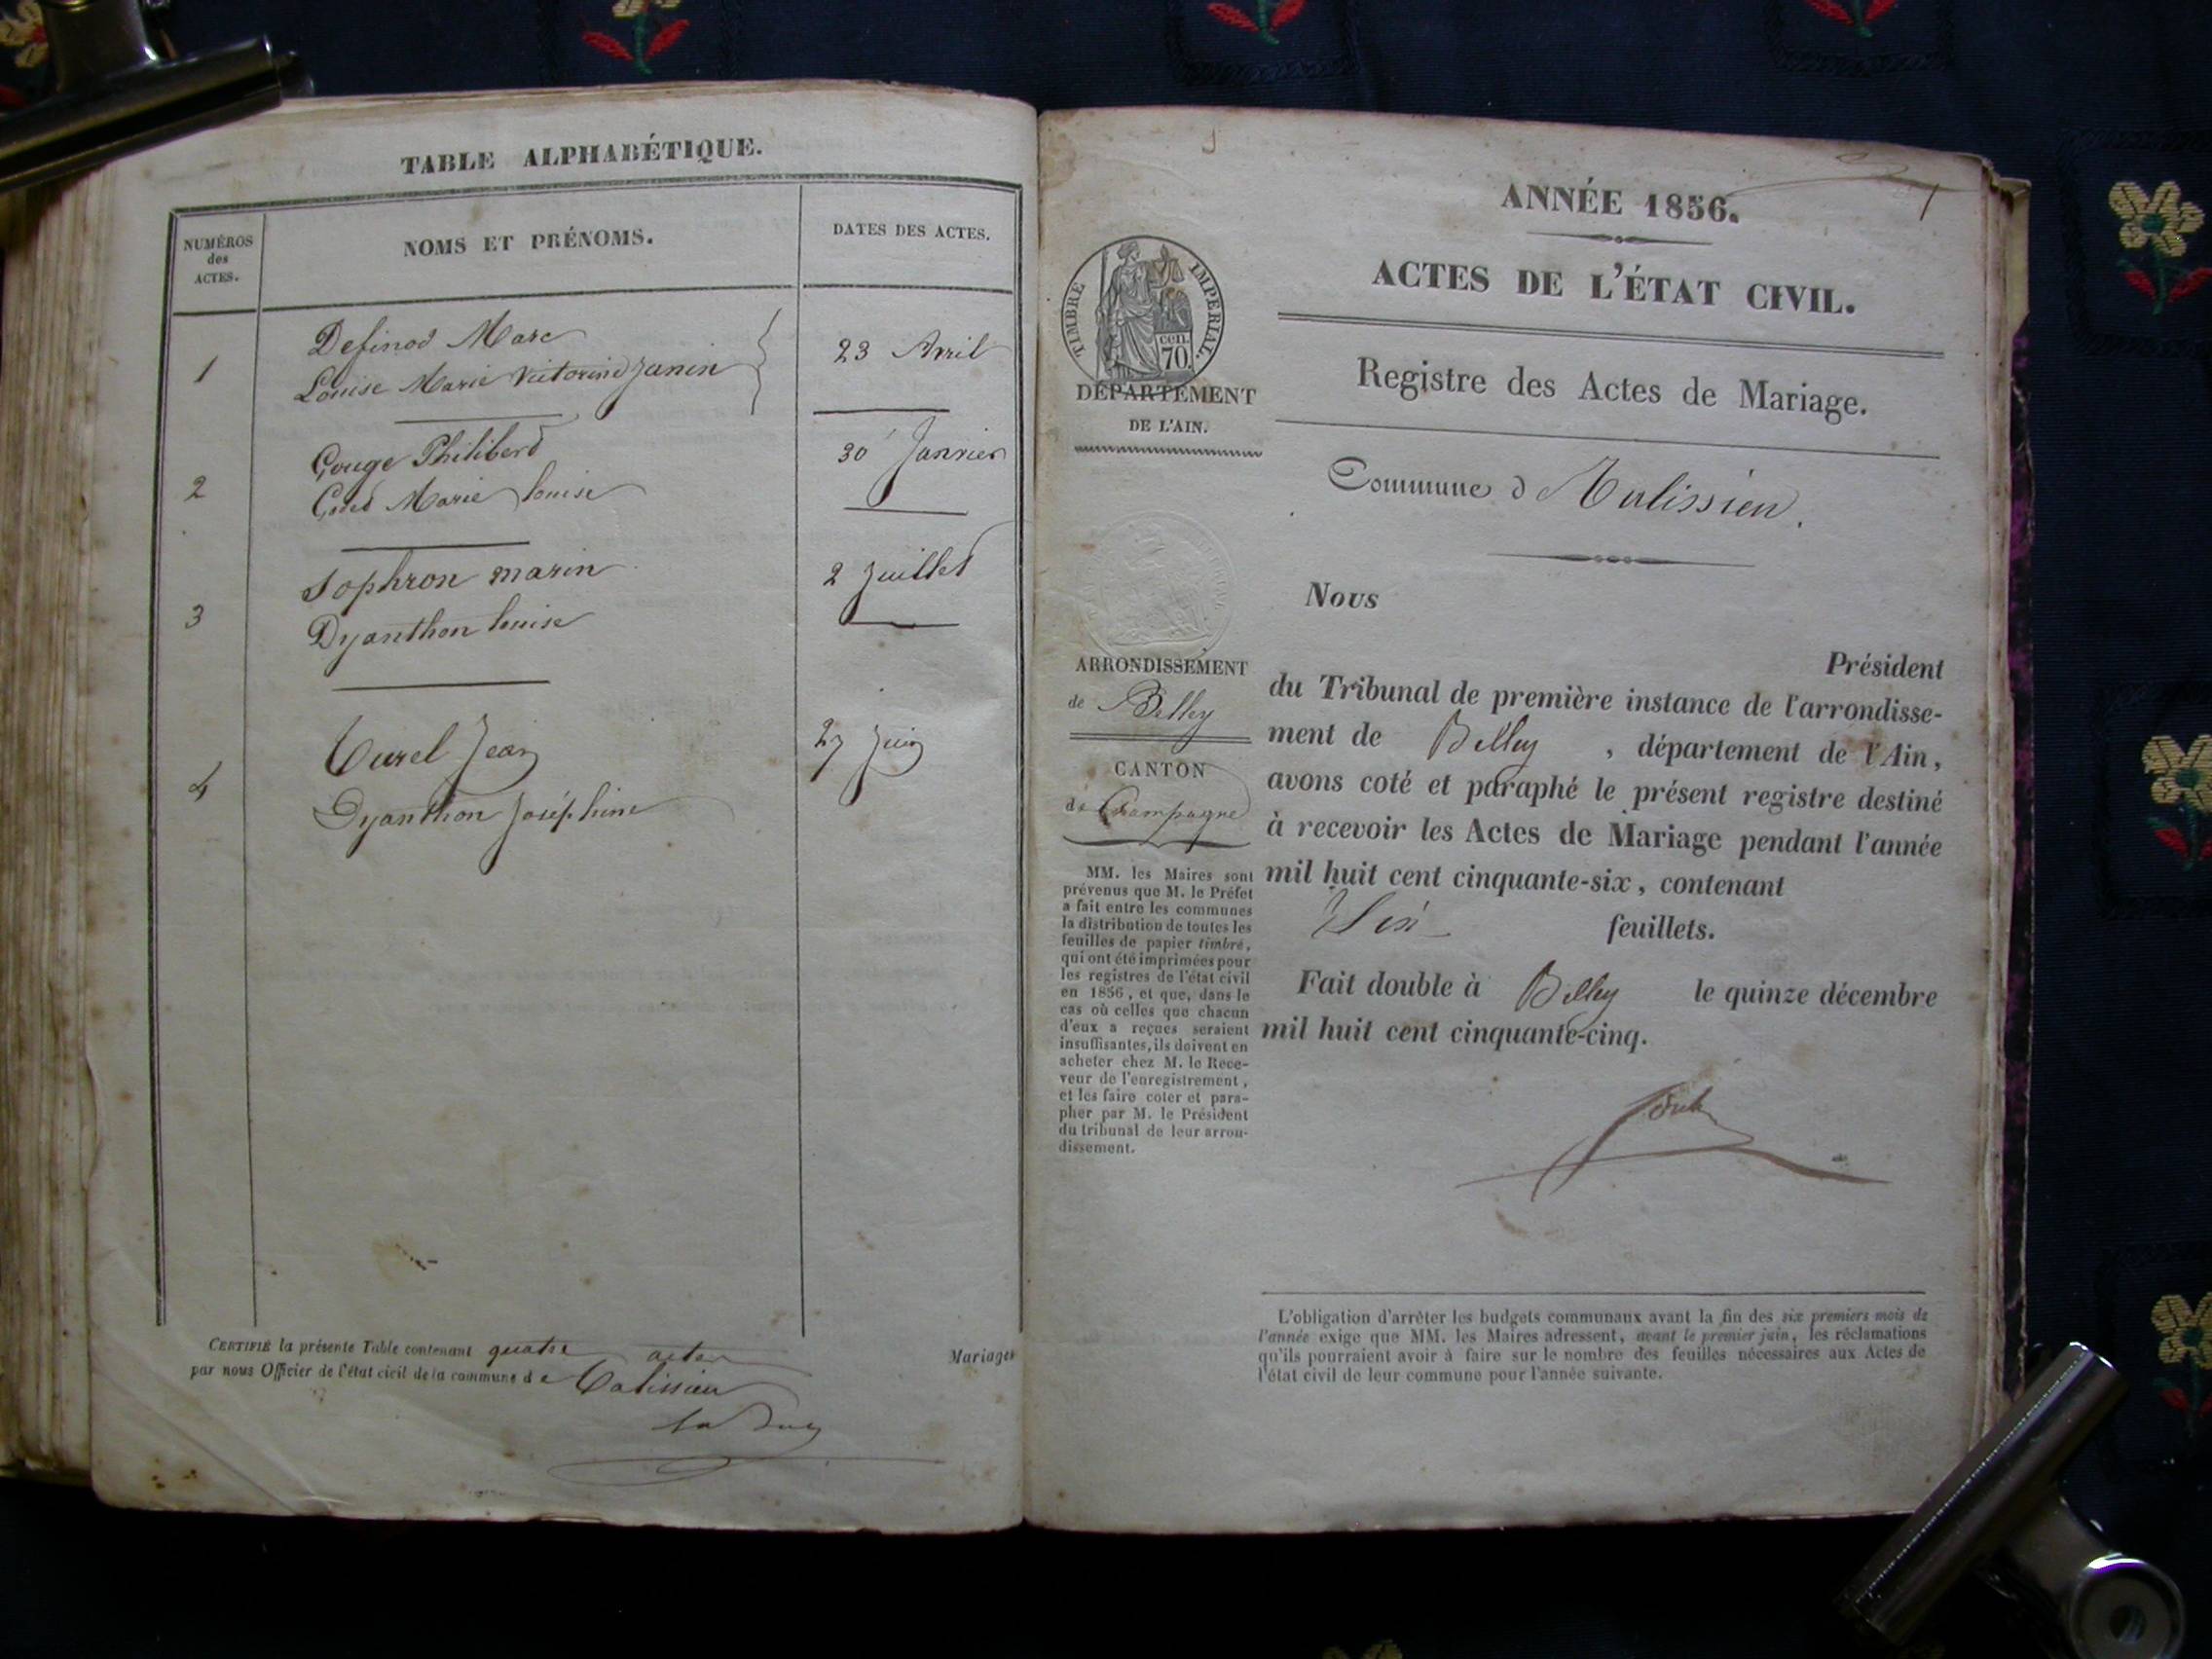 TABLE ALPHABÉTIQUE.
NUMÉROS
des
ACTES.
NOMS ET PRÉNOMS.
DATES DES ACTES.
1
Definod Marc
Louise Marie Victorine Janin
23 Avril
2
Gouge Philiberd
Marie Louise
30 Janvier
3
Sophron marin
Dyanthon louise
2 Juillet
4
Curel Jean
Dyanthon Joséphine
27 Juin
CERTIFIÉ la présente Table contenant quatre actes
Mariages
par nous Officier de l'état civil de la commune d e Talissieu
1
ANNÉE 1856.
ACTES DE L'ÉTAT CIVIL.
Registre des Actes de Mariage.
TIMBRE IMPERIAL.
CEN.
70.
DÉPARTEMENT
DE L'AIN.
Commune d Talissieu.
Nous
Président
du Tribunal de première instance de l'arrondisse-
ment de Belley , département de l'Ain,
avons coté et paraphé le présent registre destiné
à recevoir les Actes de Mariage pendant l'année
mil huit cent cinquante-six, contenant
Six feuillets.
Fait double à Belley le quinze décembre
mil huit cent cinquante-cinq.
ARRONDISSEMENT
de Belley
CANTON
de Champagne
MM. les Maires sont
prévenus que M. le Préfet
a fait entre les communes
la distribution de toutes les
feuilles de papier timbré,
qui ont été imprimées pour
les registres de l'état civil
en 1856, et que, dans le
cas où celles que chacun
d'eux a reçues seraient
insuffisantes, ils doivent en
acheter chez M. le Rece-
veur de l'enregistrement,
et les faire coter et para-
pher par M. le Président
du tribunal de leur arron-
dissement.
L'obligation d'arrêter les budgets communaux avant la fin des six premiers mois de
l'année exige que MM. les Maires adressent, avant le premier juin, les réclamations
qu'ils pourraient avoir à faire sur le nombre des feuilles nécessaires aux Actes de
l'état civil de leur commune pour l'année suivante.